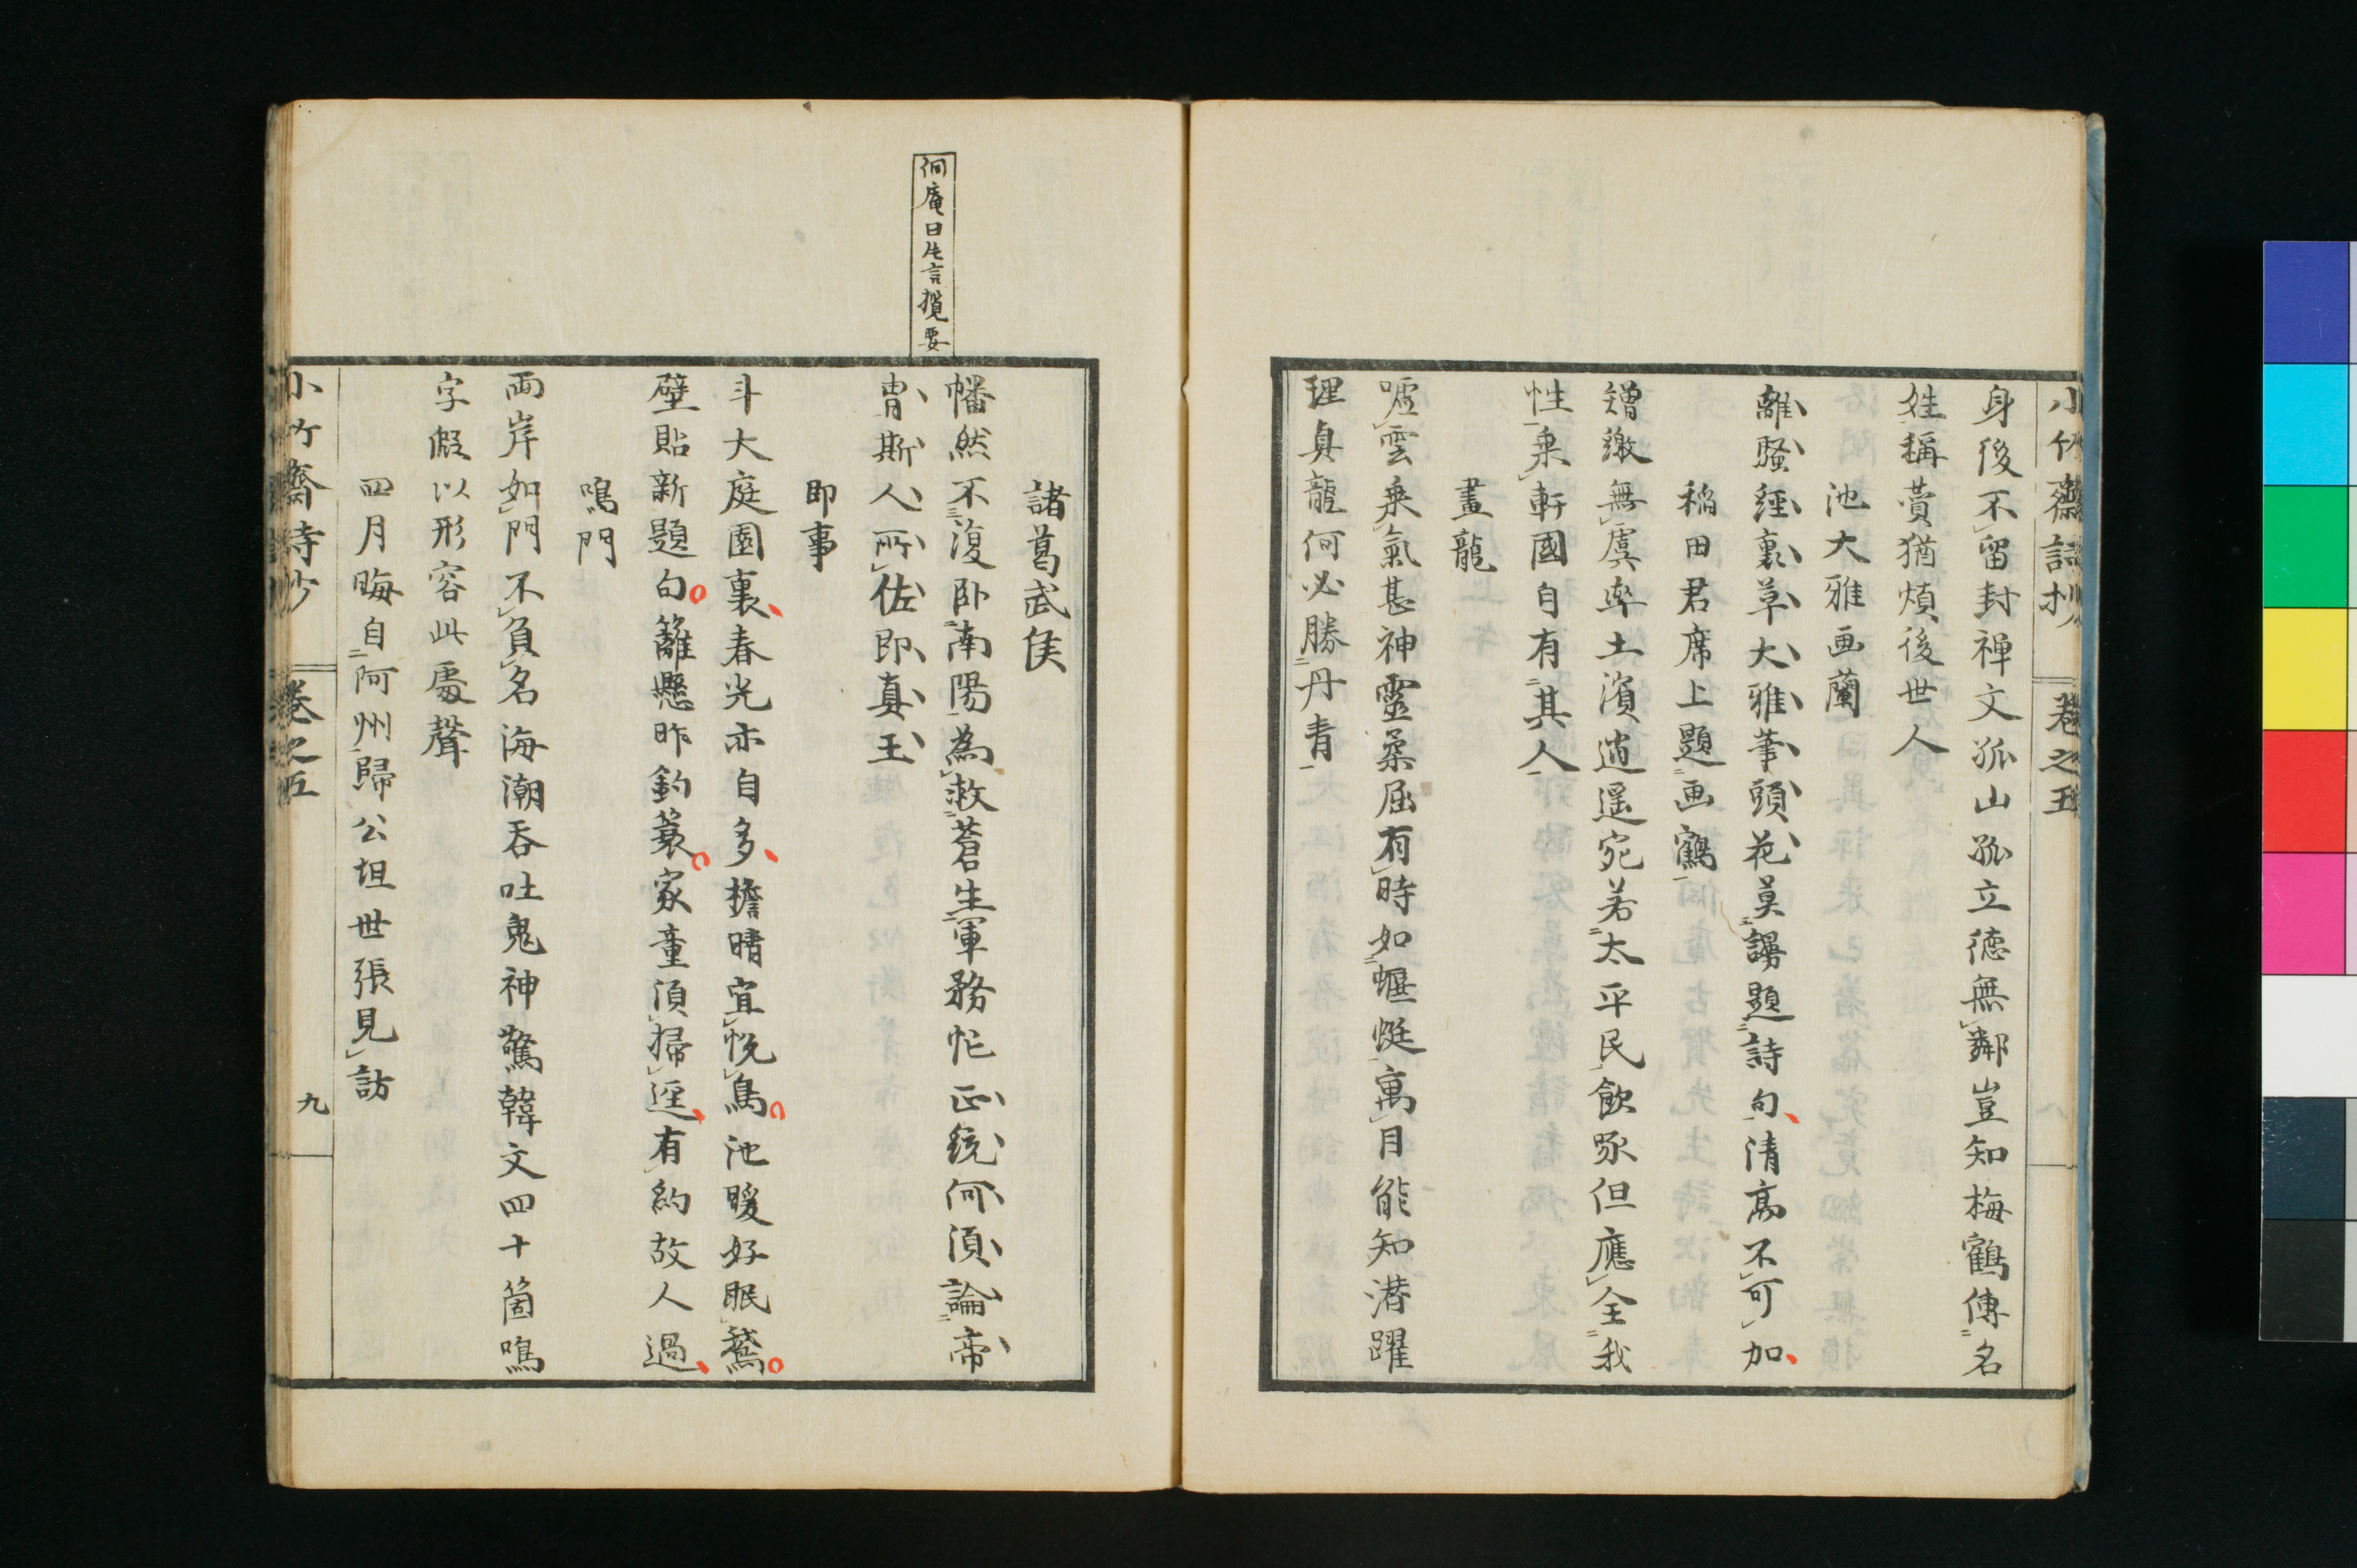 小竹齋詩抄 卷之五
身後不留封禅文孤山孤立德無鄰豈知梅鶴傳名
姓稱賣猶煩後世人
池大雅画蘭
離騷經裏草大雅筆頭花莫謾題詩句清高不可加
稲田君席上題画鶴
矰繳無虞率土濱逍遥宛若太平民飲啄但應全我
性乗軒國自有其人
畫龍
嘘雲乗氣甚神靈柔屈有時如蝘蜓寓目能知潜躍
理真龍何必勝丹青
諸葛武侯
幡然不復卧南陽為救蒼生軍務忙正統何須論帝
冑斯人所佐即真王
侗庵曰片言摂要
即事
斗大庭園裏春光亦自多擔晴宜悦鳥池暖好眠鵞
壁貼新題句籬懸昨釣蓑家童須掃逕有約故人過
鳴門
両岸如門不負名海潮呑吐鬼神驚韓文四十箇鳴
字假以形容此處聲
四月晦自阿州歸公坦世張見訪
小竹齋詩抄 卷之五 九